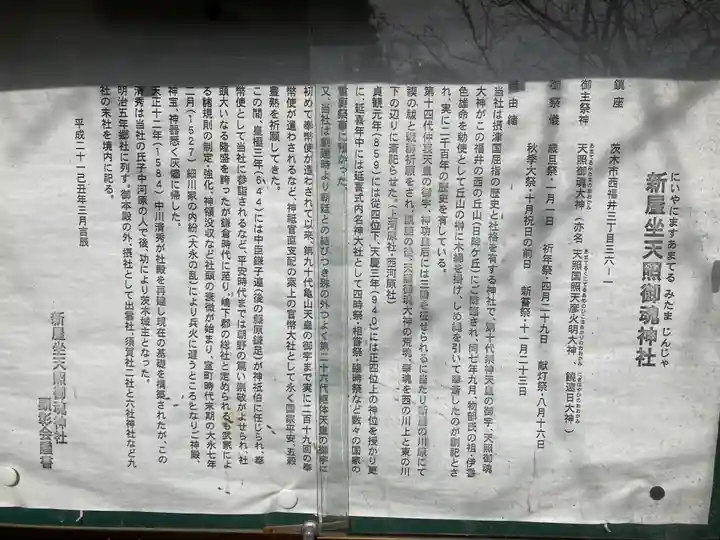 にいやにますあまてる みたま じんじゃ
新屋坐天照御魂神社
鎮座 茨木市西福井三丁目三六ー一
御主祭神 天照御魂大神(亦名 天照国照天彦火明大神、饒速日大神)
御祭儀 歳旦祭・一月一日 祈年祭・四月二十九日 献灯祭・八月十六日
秋季大祭・十月祝日の前日 新嘗祭・十一月二十三日
由緒
当社は摂津国屈指の歴史と社格を有する神社で、第十代崇神天皇の御宇、天照御魂
大神がこの福井の西の丘山(日降ケ丘)にご降臨され、同七年九月、物部氏の祖・伊香
色雄命を勅使として丘山の榊に木綿を掛け、しめ縄を引いて奉斎したのが創祀とさ
れ、実に二千百年の歴史を有している。
第十四代仲哀天皇の御宇、神功皇后には三韓を征せられるに当たり新屋の川原にて
禊の祓と戦勝祈願をされ、凱旋の後、天照御魂大神の荒魂、幸魂を西の川上と東の川
下の辺りに斎祀らせた。(上河原社・西河原社)
貞観元年(859)には従四位下、天慶三年(940)には正四位上の神位を授かり更
に、延喜年中には延喜式内名神大社として四時祭・相嘗祭・臨時祭など数々の国家の
重要祭事に預かった。
又、当社は創建時より朝廷との結びつき殊の外つよく第二十六代継体天皇の御宇に
初めて奉幣使が遣わされて以来、第九十代亀山天皇の御宇まで実に二百十九回の奉
幣使が遣わされるなど、神祇官直支配の案上の官幣大社として永く国家平安、五穀
豊熟を祈願してきた。
この間、皇極三年(644)には中臣鎌子連(後の藤原鎌足)が神祇伯に任じられ、奉
幣使として当社に参詣されるなど、平安時代までは朝野の篤い崇敬がよせられ、社
頭大いなる隆盛を誇ったが鎌倉時代に至り、嶋下郡の総社と定められるも武家によ
る諸規則の制定・強化、神領没収など社頭の衰微が始まり、室町時代末期の大永七年
二月(1527)細川家の内紛(大永の乱)により兵火に遭うところとなりご神殿、
神宝、神器悉く灰燼に帰した。
天正十二年(1584)中川清秀が社殿を再建し現在の基礎を構築されたが、この
清秀は当社の氏子中河原の人で後、功により茨木城主となった。
明治五年郷社に列す。御本殿の外、摂社として出雲社、須賀社二社と六社神社など九
社の末社を境内に祀る。
平成二十一己丑年三月吉辰
新屋坐天照御魂神社
顕彰会謹書